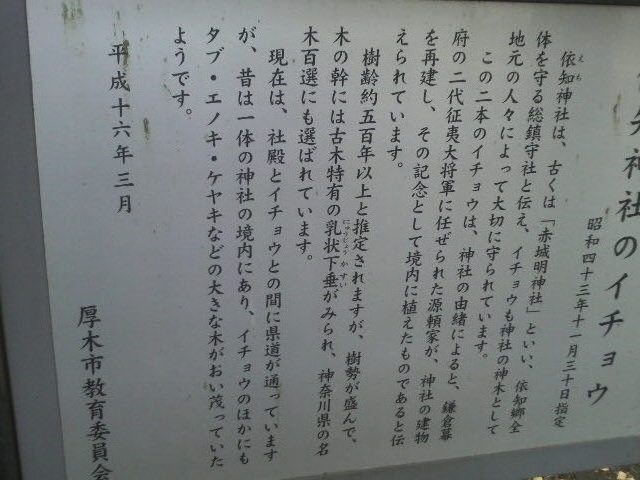 矢神社のイチョウ
昭和四十三年十一月三十日指定
えち
依知神社は、古くは「赤城明神社」といい、依知郷全
体を守る総鎮守社と伝え、イチョウも神社の神木として
地元の人々によって大切に守られています。
この二本のイチョウは、神社の由緒によると、鎌倉幕
府の二代征夷大将軍に任ぜられた源頼家が、神社の建物
を再建し、その記念として境内に植えたものであると伝
えられています。
樹齢約五百年以上と推定されますが、樹勢が盛んで、
木の幹には古木特有の乳状下垂がみられ、神奈川県の名
にゅうじょうかすい
木百選にも選ばれています。
現在は、社殿とイチョウとの間に県道が通っています
が、昔は一体の神社の境内にあり、イチョウのほかにも
タブ・エノキ・ケヤキなどの大きな木がおい茂っていた
ようです。
平成十六年三月
厚木市教育委員会